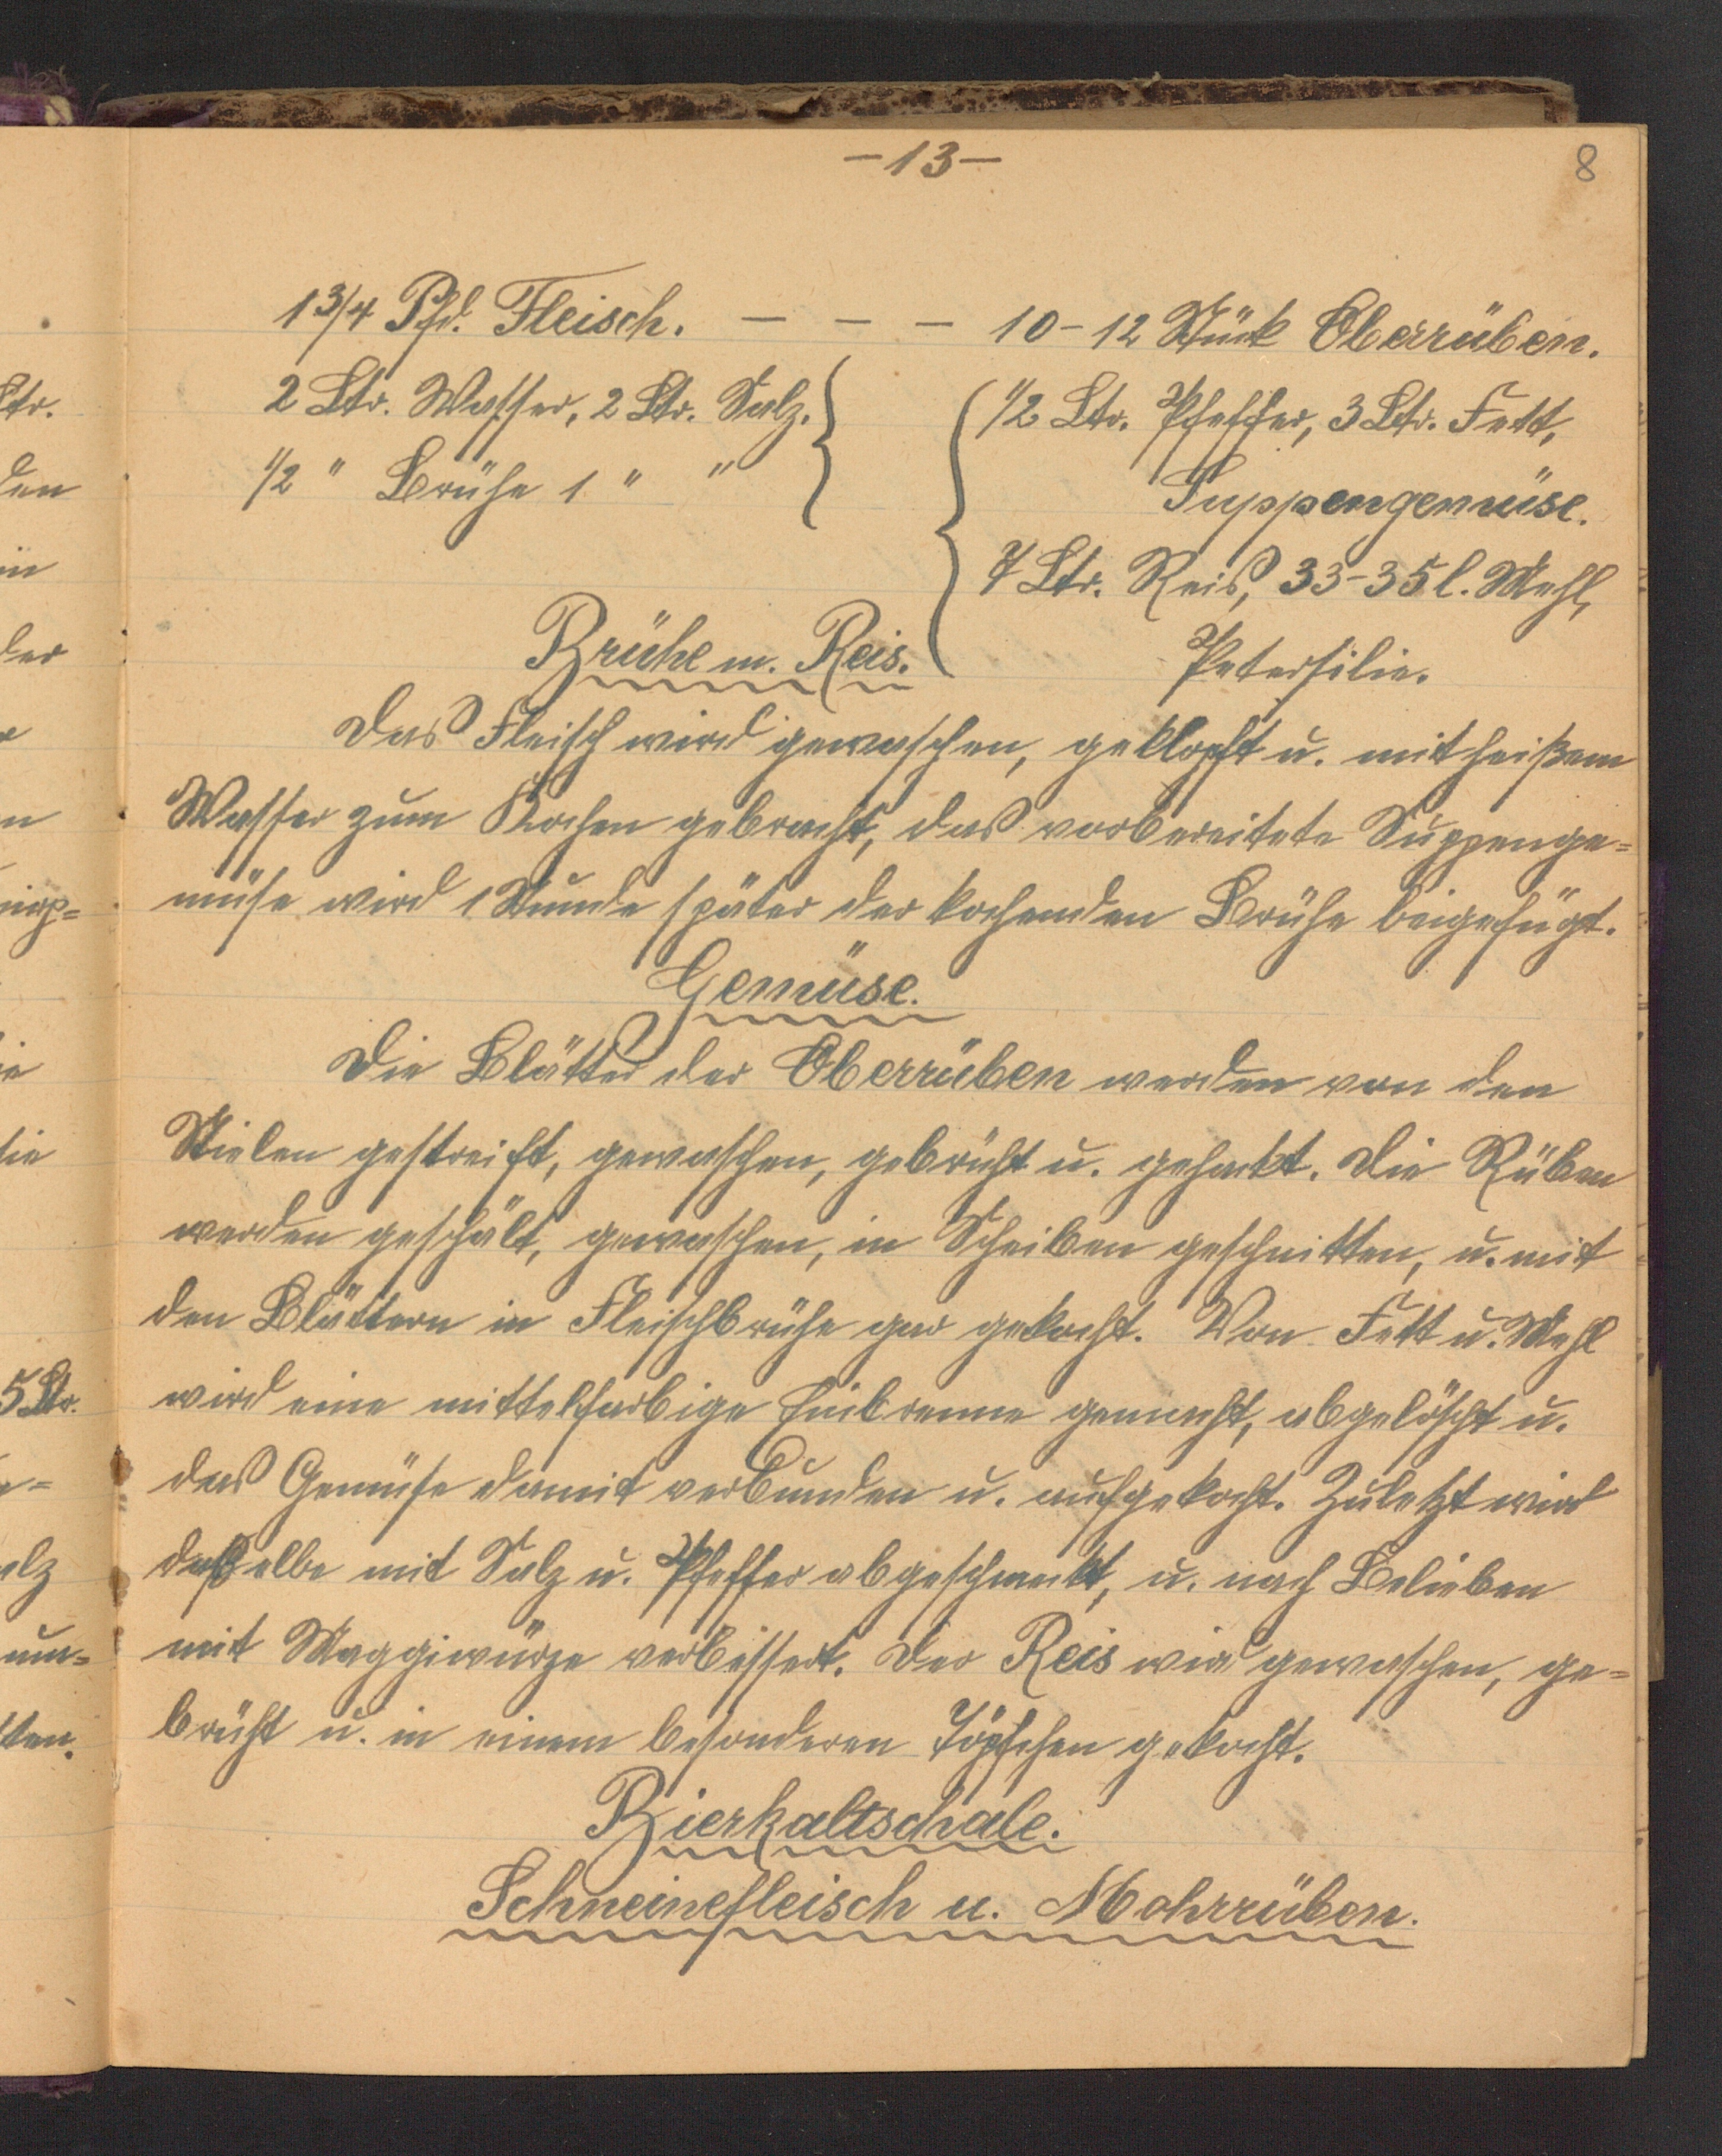 -13-
8
1 3/4 Pfd. Fleisch. - - - 10-12 Stück Oberrüben.
2 Ltr. Wasser, 2 Ltr. Salz.
1/2 " Brühe 1 " "
1/2 Ltr. Pfeffer, 3 Ltr. Fett,
Suppengemüse.
7 Ltr. Reis, 33-35 l. Mehl,
Petersilie.
Brühe m. Reis.
Das Fleisch wird gewaschen, geklopft u. mit heißem
Wasser zum Kochen gebracht, das vorbereitete Suppenge=
müse wird 1 Stunde später der kochenden Brühe beigefügt.
Gemüse.
Die Blätter der Oberrüben werden von den
Stielen gestreift, gewaschen, gebrüht u. gehackt. Die Rüben
werden geschält, gewaschen, in Scheiben geschnitten, u. mit
den Blättern in Fleischbrühe gar gekocht. Von Fett u. Mehl
wird eine mittelfarbige Einbrenne gemacht, abgelöscht u.
das Gemüse damit verbunden u. aufgekocht. Zuletzt wird
dasselbe mit Salz u. Pfeffer abgeschmeckt, u. nach Belieben
mit Maggiwürze verbessert. Der Reis wird gewaschen, ge=
brüht u. in einem besonderen Töpfchen gekocht.
Bierkaltschale.
Schweinefleisch u. Mohrrüben.